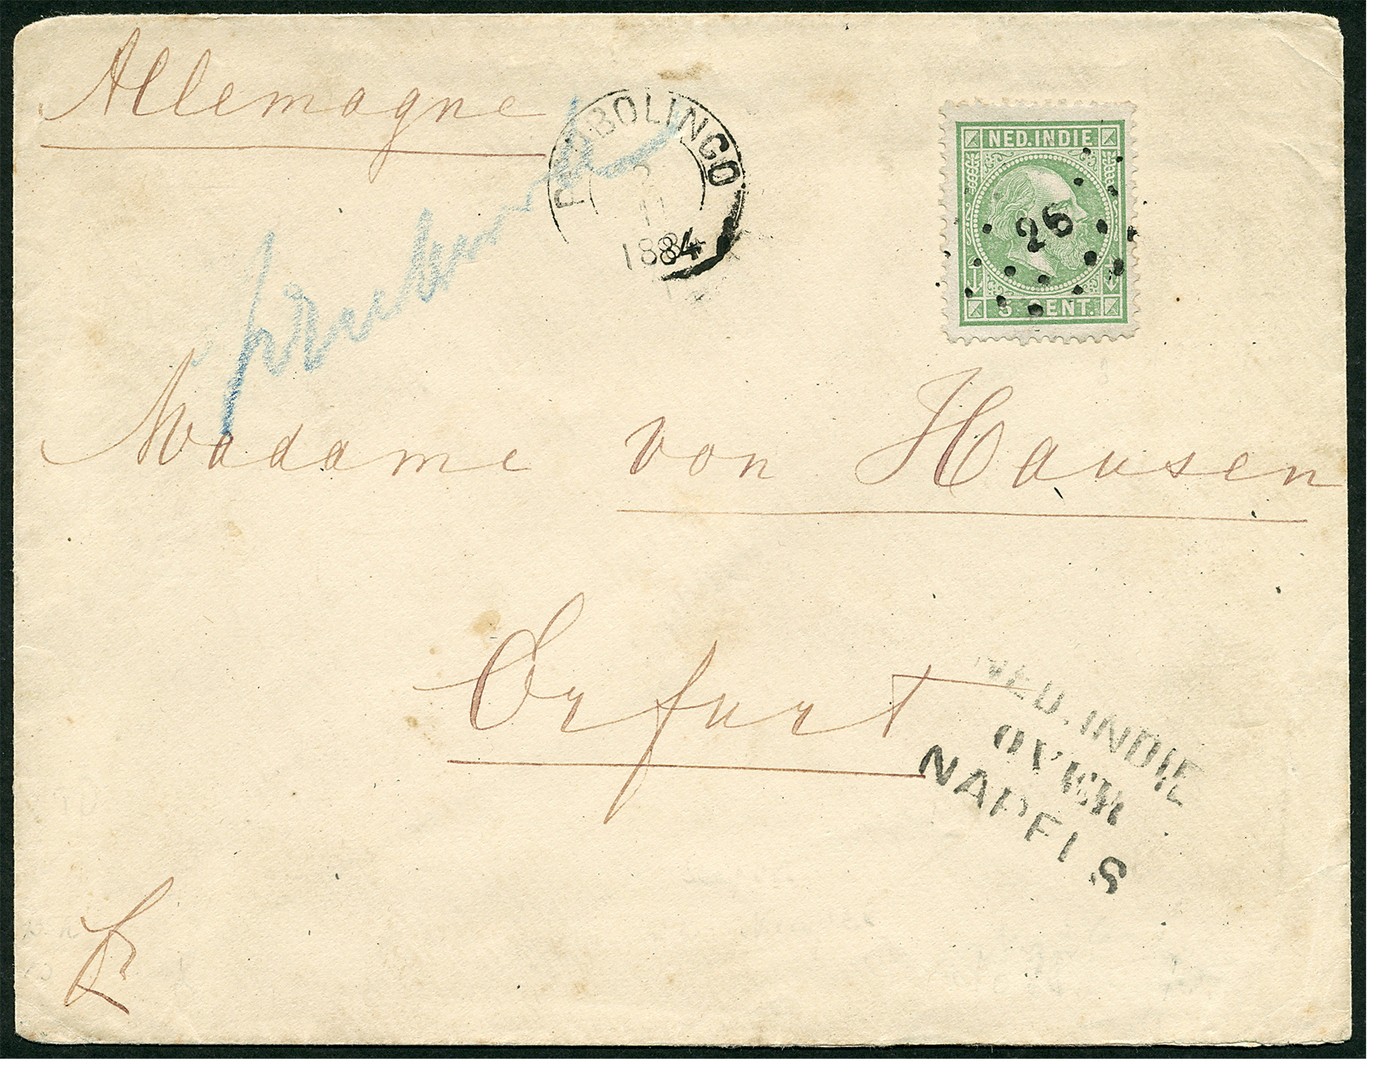 Allemagne
PROBOLINGO
2
11
1884
NED. INDIE
26
5 CENT.
Madame von Hausen
Erfurt
NED. INDIE
OVER
NAPELS